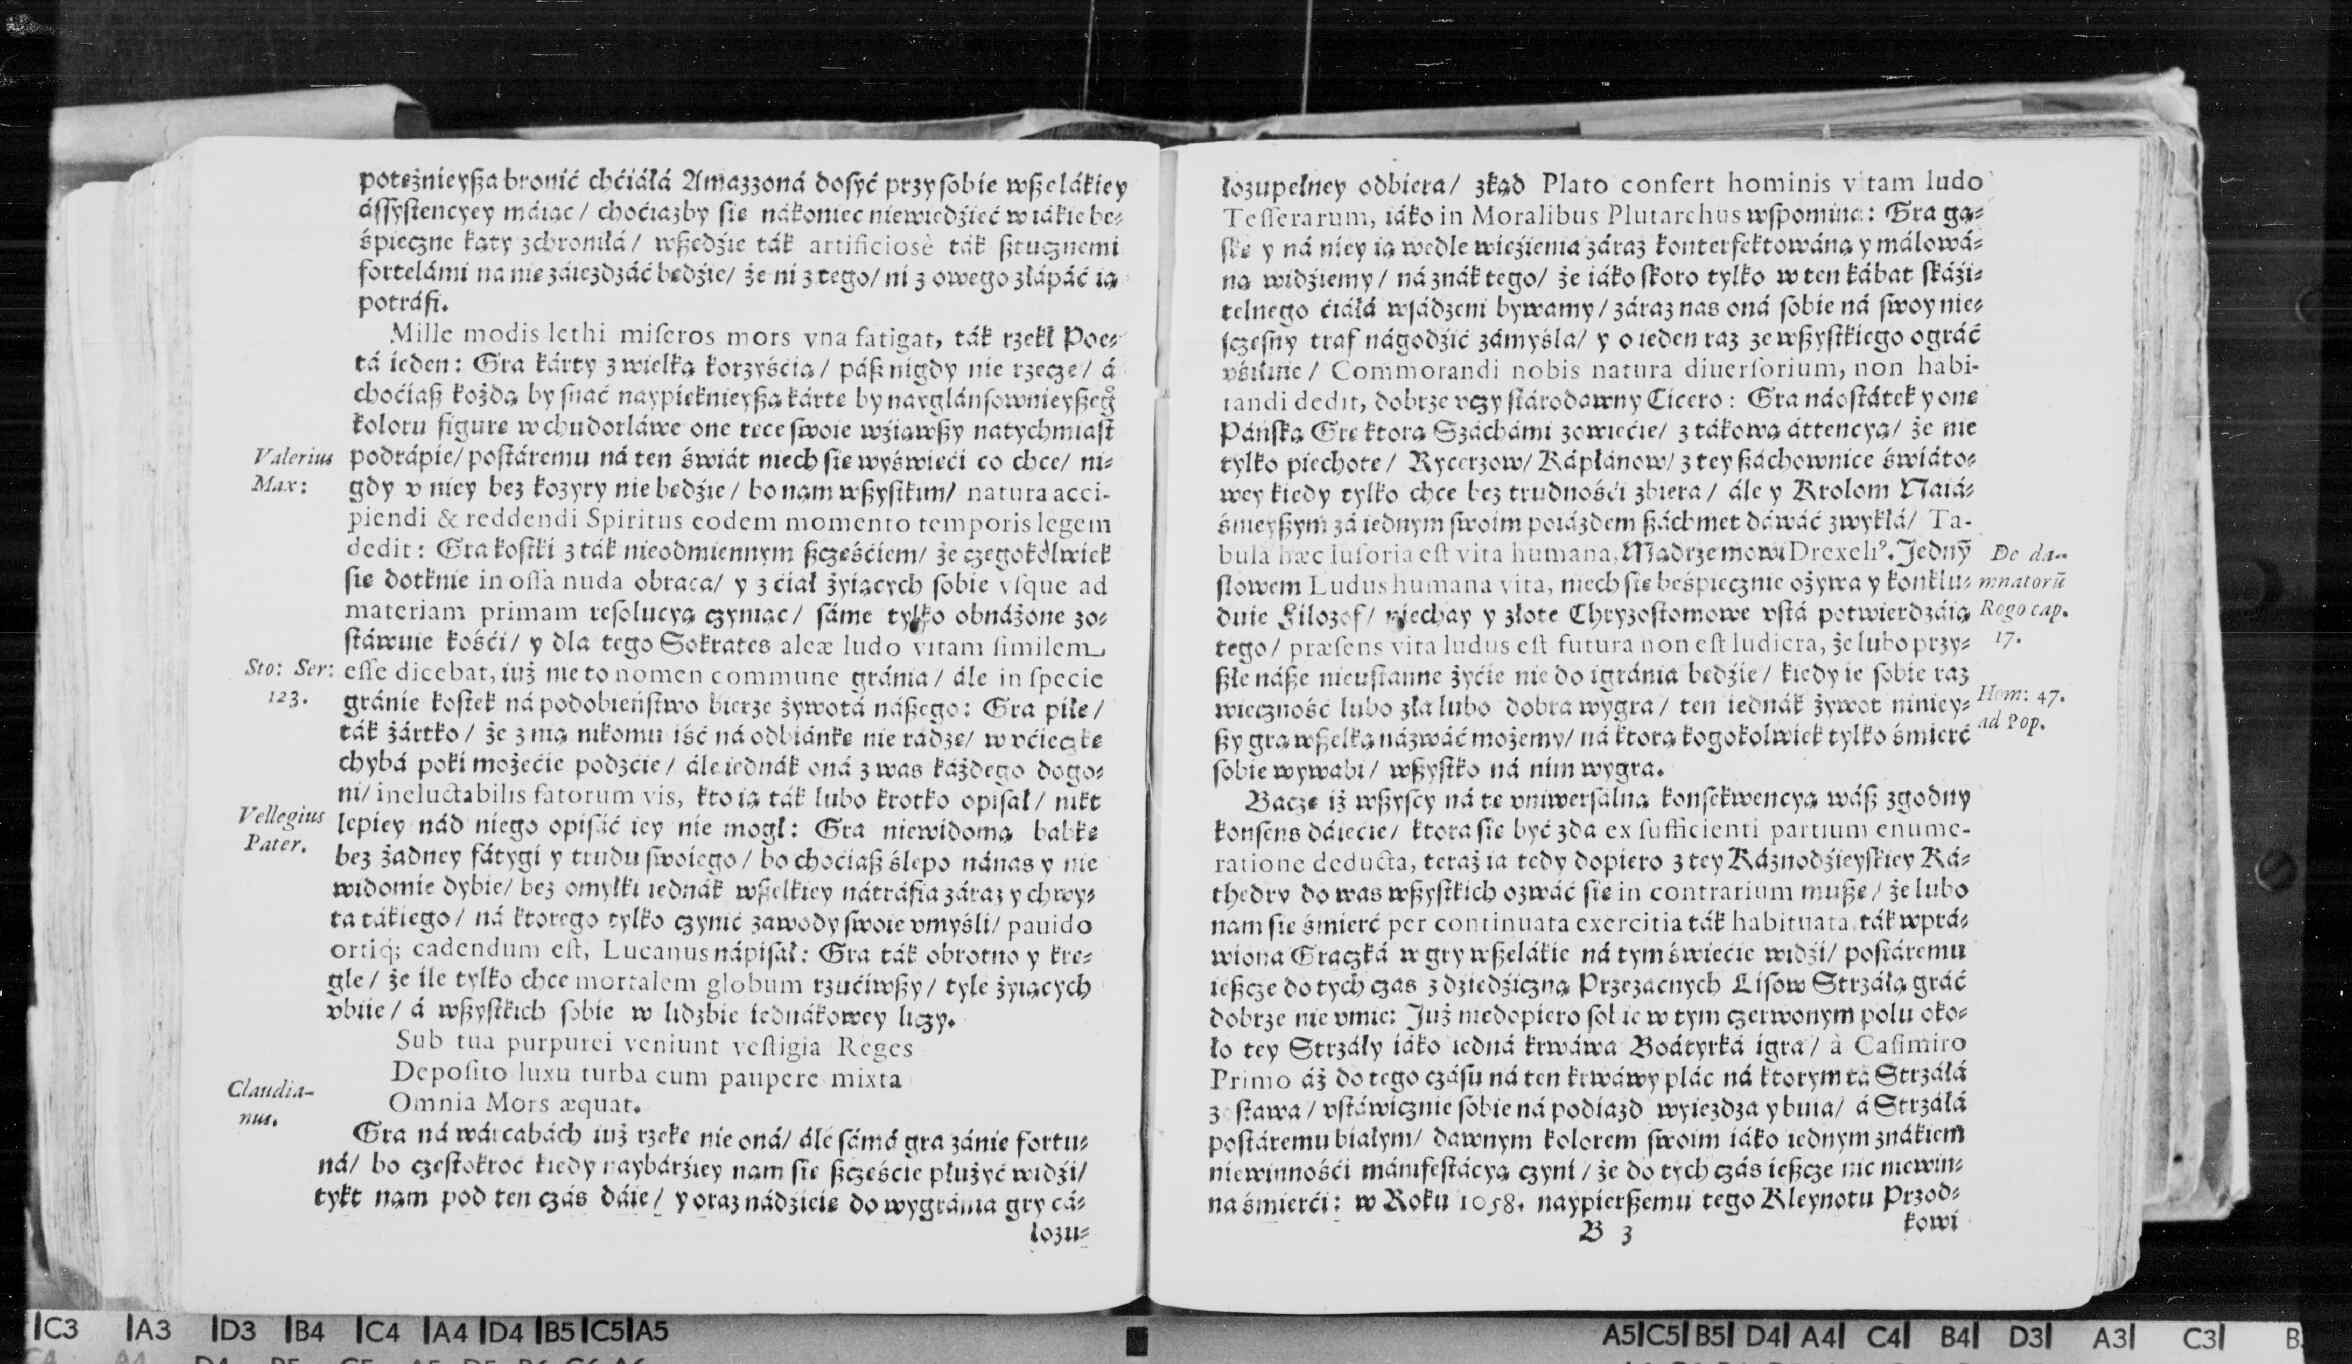 potężnieyßa bronić chćiáłá Amazzoná dosyć przy sobie wßelákiey
ássystencyey máiąc / choćiażby się nákoniec niewiedźieć w iákie be⸗
śpieczne kąty zchroniłá / wßędźie ták artificiosè ták ßtucznemi
fortelámi na nię záiezdzáć będźie / że ni z tego / ni z owego złápáć ią
potráfi.
Mille modis lethi miſeros mors vna fatigat, ták rzekł Poe⸗
tá ieden: Gra kárty z wielką korzyśćią / páß nigdy nie rzecze / á
choćiaß kożdą by snać naypięknieyßą kártę by nayglánsownieyßeg°
koloru figurę w chudorláwe one ręce swoie wźiąwßy natychmiast
Valerius
Max:
podrápie / postáremu ná ten świát niech się wyświeći co chce / ni⸗
gdy v niey bez kozyry nie będźie / bo nam wßystkim / natura acci-
piendi & reddendi Spiritus eodem momento temporis legem
dedit: Gra kostki z ták nieodmiennym ßczęśćiem / że czegokolwiek
się dotknie in oſſa nuda obraca / y z ćiał żyiących sobie vſque ad
materiam primam resolucyą czyniąc / sáme tylko obnáżone zo⸗
stáwuie kośći / y dla tego Sokrates aleæ ludo vitam ſimilem
Sto: Ser:
123.
eſſe dicebat, iuż nie to nomen commune gránia / ále in ſpecie
gránie kostek ná podobieństwo bierze żywotá náßego: Gra piłę /
ták żártko / że z nią nikomu iść ná odbiánkę nie rádzę / w vćieczkę
chybá poki możećie podźćie / ále iednák oná z was káżdego dogo⸗
ni / ineluctabilis fatorum vis, kto ią ták lubo krotko opisał / nikt
Vellegius
Pater.
lepiey nád niego opisáć iey nie mogł: Gra niewidomą babkę
bez żadney fátygi y trudu swoiego / bo choćiaß ślepo nánas y nie
widomie dybie / bez omyłki iednák wßelkiey nátráfia záraz y chwy⸗
ta tákiego / ná ktorego tylko czynić zawody swoie vmyśli / pauido
ortiq; cadendum eſt, Lucanus nápisał: Gra ták obrotno y krę⸗
gle / że ile tylko chce mortalem globum rzućiwßy / tyle żyiących
vbiie / á wßystkich sobie w lidzbie iednákowey liczy.
Sub tua purpurei veniunt veſtigia Reges
Depoſito luxu turba cum paupere mixta
Claudia-
nus.
Omnia Mors æquat.
Gra ná wárcabách iuż rzekę nie oná / ále sámá gra zánię fortu⸗
ná / bo częstokroć kiedy naybárźiey nam się ßczęśćie płużyć widźi /
tykt nam pod ten czás dáie / y oraz nádzieię do wygránia gry cá⸗
łozu⸗
łozupełney odbiera / zkąd Plato confert hominis vitam ludo
Teſſerarum, iáko in Moralibus Plutarchus wspomina: Gra gą⸗
skę y ná niey ią wedle więźienia záraz konterfektowáną y málowá⸗
ną widźiemy / ná znák tego / że iáko skoro tylko w ten kábat skáźi⸗
telnego ćiáłá wsádzeni bywamy / záraz nas oná sobie ná swoy nie⸗
sczęsny traf nágodźić zámyśla / y o ieden raz ze wßystkiego ográć
vśiłuie / Commorandi nobis natura diuerſorium, non habi-
tandi dedit, dobrze vczy stárodawny Cicero: Gra náostátek y onę
Páńską Grę ktorą Száchámi zowiećie / z tákową áttencyą / że nie
tylko piechotę / Rycerzow / Kápłánow / z tey ßáchownice świáto⸗
wey kiedy tylko chce bez trudnośći zbiera / ále y Krolom Naiá⸗
śnieyßym zá iednym swoim poiázdem ßáchmet dáwáć zwykłá / Ta-
bula hæc luſoria eſt vita humana, Mądrze mowi Drexeli⁹. Jednỹ
De da-
mnatorũ
Rogo cap.
17.
słowem Ludus humana vita, niech się beśpiecznie ożywa y konklu⸗
duie Filozof / niechay y złote Chryzostomowe vstá potwierdzáią
tego / præſens vita ludus eſt futura non eſt ludicra, że lubo przy⸗
ßłe náße nieustanne żyćie nie do igránia będźie / kiedy ie sobie raz
Hom: 47.
ad Pop.
wieczność lubo zła lubo dobra wygra / ten iednák żywot niniey⸗
ßy grą wßelką názwáć możemy / ná ktorą kogokolwiek tylko śmierć
sobie wywabi / wßystko ná nim wygra.
Baczę iż wßyscy ná tę vniwersálną konsekwencyą wáß zgodny
konsens dáiećie / ktora się być zda ex ſufficienti partium enume-
ratione deducta, teraż ia tedy dopiero z tey Káznodźieyskiey Ká⸗
thedry do was wßystkich ozwáć się in contrarium mußę / że lubo
nam się śmierć per continuata exercitia ták habituata, ták wprá⸗
wiona Graczká w gry wßelákie ná tym świećie widźi / postáremu
ießcze do tych czas z dziedźiczną Przezacnych Lisow Strzáłą gráć
dobrze nie vmie: Już niedopiero sobie w tym czerwonym polu oko⸗
ło tey Strzáły iáko iedná krwáwa Boátyrká igra / à Caſimiro
Primo áż do tego czásu ná ten krwáwy plác ná ktorym tá Strzáłá
zostawa / vstáwicznie sobie ná podiazd wyiezdza y buia / á Strzáłá
postáremu białym / dawnym kolorem swoim iáko iednym znákiem
niewinnośći mánifestácyą czyni / że do tych czás ießcze nic niewin⸗
na śmierći: w Roku 1058. naypierßemu tego Kleynotu Przod⸗
B 3
kowi
C3 A3 D3 B4 C4 A4 D4 B5 C5 A5
A5 C5 B5 D4 A4 C4 B4 D3 A3 C3